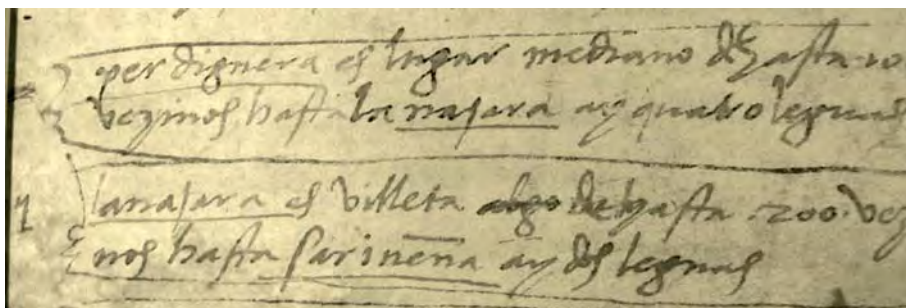 perdiguera es lugar mediano de hasta 10
vezinos hasta lanajara ay quatro leguas
lanajara es villeta de hasta .200. vezi
nos hasta sariñena ay dos leguas